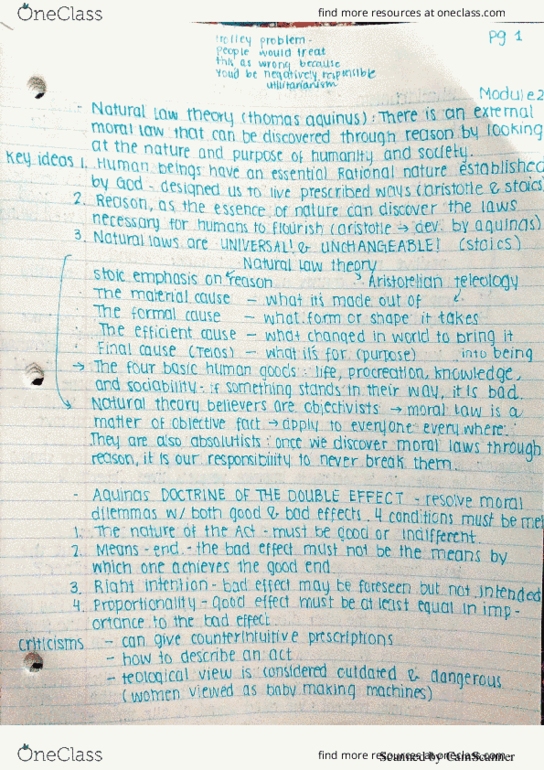 OneClass
find more resources at oneclass.com
trolley problem -
people would treat
this as wrong because
you'd be negatively responsible
utilitarianism
pg 1
Module 2
- Natural law theory (thomas aquinus): There is an external
moral law that can be discovered through reason by looking
at the nature and purpose of humanity and society.
Key ideas 1. Human beings have an essential Rational nature established
by God - designed us to live prescribed ways (aristotle & stoics)
2. Reason, as the essence of nature can discover the laws
necessary for humans to flourish (aristotle → dev. by aquinas)
3. Natural laws are UNIVERSAL! & UNCHANGEABLE! (stoics)
Natural law theory
stoic emphasis on reason Aristotelian teleology
The material cause - what it's made out of
The formal cause - what form or shape it takes
The efficient cause - what changed in world to bring it
into being
Final cause (Telos) - what it's for (purpose)
→ The four basic human goods: life, procreation, knowledge,
and sociability - if something stands in their way, it is bad.
Natural theory believers are objectivists → moral law is a
matter of objective fact → apply to everyone everywhere.
They are also absolutists: once we discover moral laws through
reason, it is our responsibility to never break them.
- Aquinas DOCTRINE OF THE DOUBLE EFFECT - resolve moral
dilemmas w/ both good & bad effects. 4 conditions must be met
1. The nature of the Act - must be good or indifferent.
2. Means - end - the bad effect must not be the means by
which one achieves the good end
3. Right intention - bad effect may be foreseen but not intended
4. Proportionality - Good effect must be at least equal in imp-
ortance to the bad effect.
Criticisms - can give counterintuitive prescriptions
- how to describe an act
- teological view is considered outdated & dangerous
(women viewed as baby making machines)
OneClass
find more resources at oneclass.com
Scanned by CamScanner